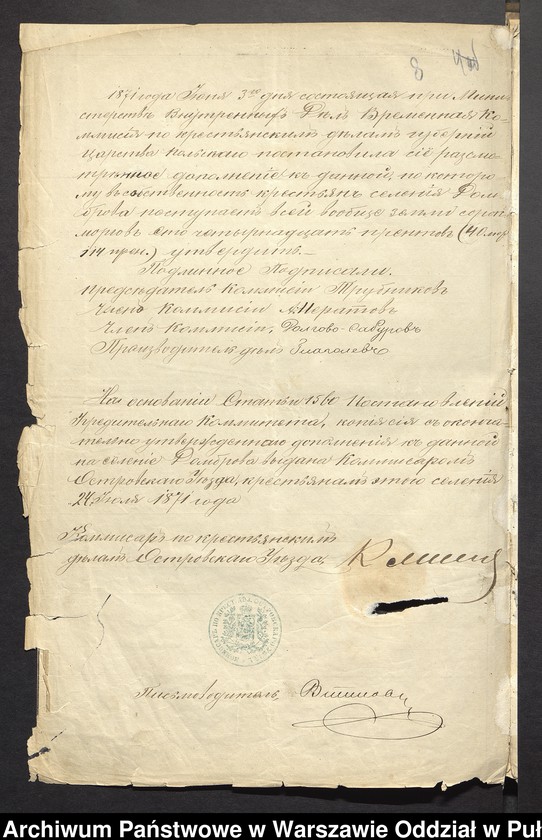 8
1871 года Іюня 3го дня состоящая при Мини-
стерствѣ Внутреннихъ Дѣлъ Временная Ком-
миссія по крестьянскимъ дѣламъ губерній
Царства Польскаго постановила: сіе разсмо-
трѣнное дополненіе къ данной, по которо-
му въ собственность крестьянъ селенія Дом-
брова поступаетъ всей вообще земли сорокъ
морговъ сто четырнадцать прентовъ (40 мор.
114 прен.) утвердить.—
Подлинное Подписали:
Предсѣдатель Коммисіи Трубниковъ
Членъ Коммисіи А. Нератовъ
Членъ Коммисіи, Долгово-Сабуровъ
Производитель дѣлъ
На основаніи Статьи 156й Постановленій
Учредительнаго Коммитета, копія сія съ оконча-
тельно утвержденнаго дополненія къ данной
на селеніе Домброва выдана Коммисаромъ
Островскаго Уѣзда, крестьянамъ этого селенія
24 Іюля 1871 года
Коммисаръ по крестьянскимъ
дѣламъ Островскаго Уѣзда,
Письмоводитель,
Archiwum Państwowe w Warszawie Oddział w Puł